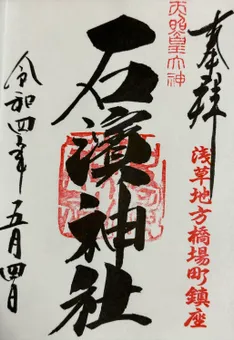 奉拝
天照皇大神
浅草地方橋場町鎮座
石濱神社
令和四年五月四日